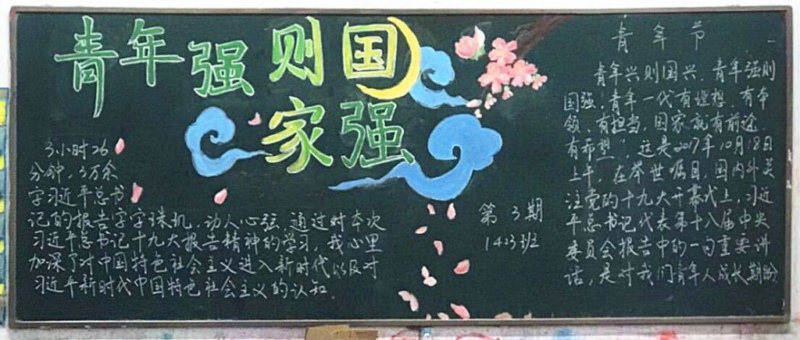 青年强则国
家强
3小时26
分钟，3万余
字习近平总书
记的报告字字珠机，动人心弦，通过对本次
习近平总书记十九大报告精神的学习，我心里
加深了对中国特色社会主义进入新时代以及对
习近平新时代中国特色社会主义的认知。
第3期
1423班
青年节
青年兴则国兴，青年强则
国强。青年一代有理想、有本
领、有担当，国家就有前途、
有希望”，这是2017年10月18日
上午，在举世瞩目，国内外关
注党的十九大开幕式上，习近
平总书记代表第十八届中央
委员会报告中的一句重要讲
话，是对我们青年人成长期盼